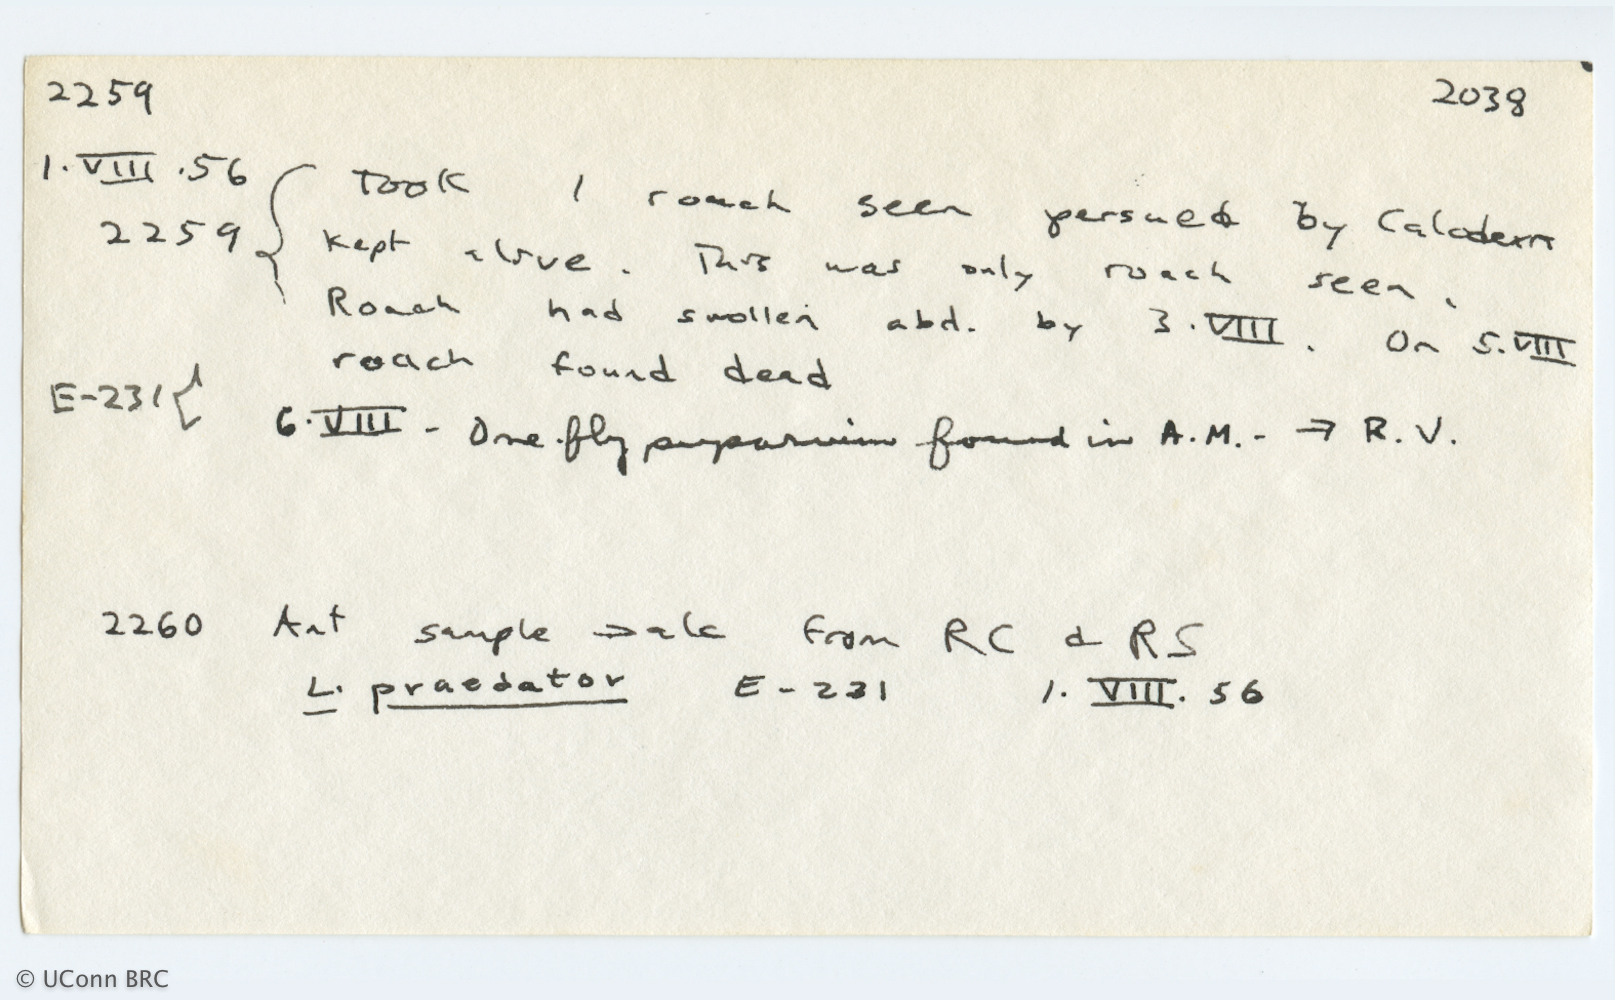 2259 2038
1. VIII .56 Took 1 roach seen persued by Calodexia
2259 kept alive. This was only roach seen.
Roach had swollen abd. by 3.VIII. On 5.VIII
roach found dead
E-231
6.VIII - One fly puparium found in A.M. - → R.V.
2260 Ant sample → alc from RC & RS
L. praedator E-231 1. VIII. 56
© UConn BRC